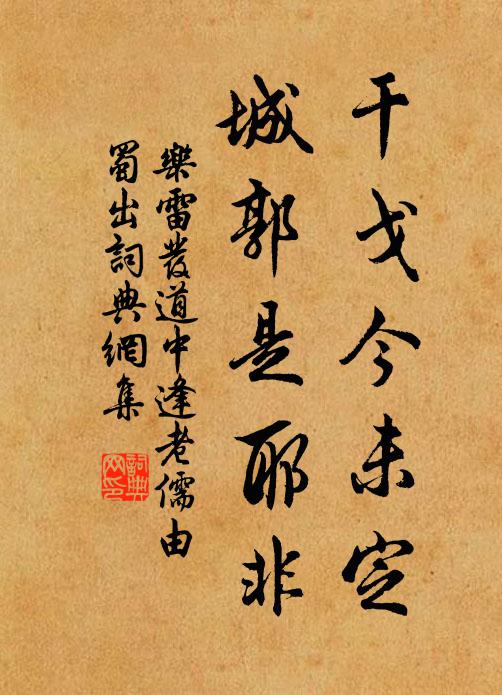 干戈今未定
城郭是耶非
樂雷發道中逢老儒由
蜀出詞典網集
詞典
网印